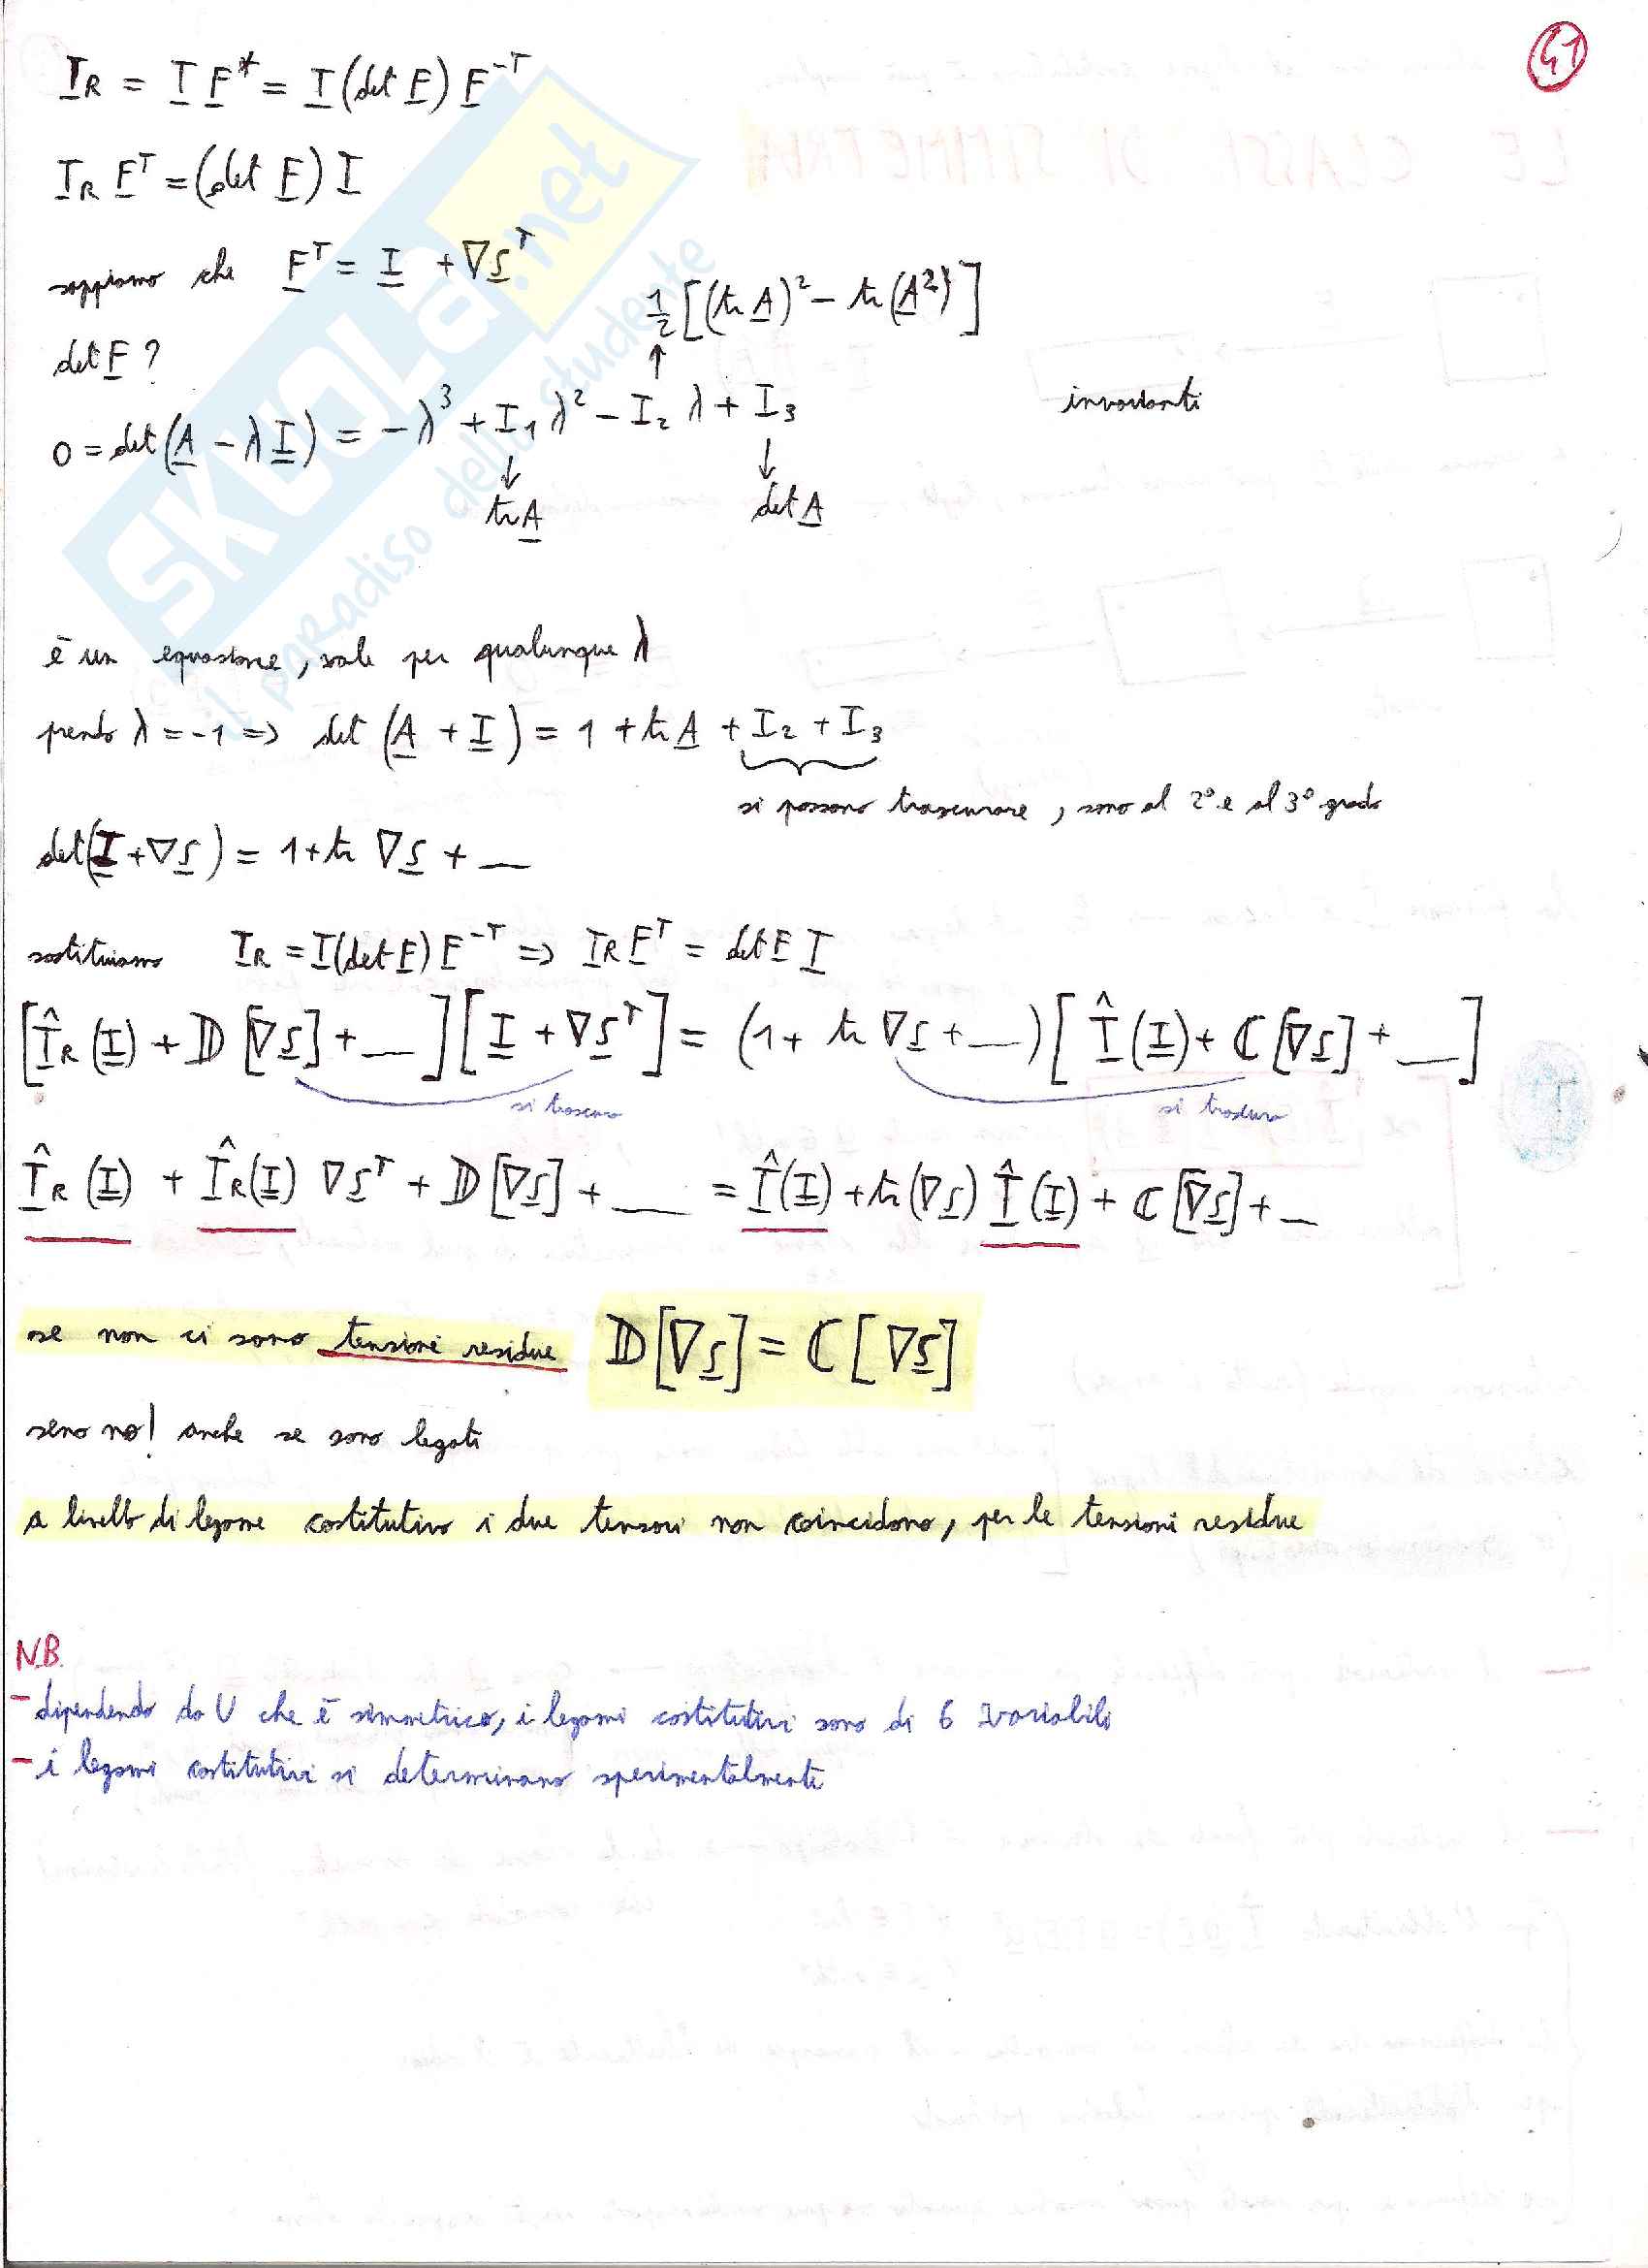 41
T_R = T F* = T (det F) F^-T
T_R F^T = (det F) T
sappiamo che F^T = I + ∇s^T
1/2 [(tr A)² - tr(A²)]
det F ?
↑
0 = det(A - λI) = -λ³ + I₁λ² - I₂λ + I₃
invarianti
↓ ↓
tr A det A
è un equazione, vale per qualunque λ
prendo λ = -1 => det (A + I) = 1 + tr A + I₂ + I₃
si possono trascurare, sono al 2° e al 3° grado
det(I + ∇s) = 1 + tr ∇s + __
sostituiamo T_R = T(det F) F^-T => T_R F^T = det F T
[T̂_R (I) + 𝔻 [∇s] + __] [I + ∇s^T] = (1 + tr ∇s + __) [T̂ (I) + ℂ [∇s] + __]
si trascura si trascura
T̂_R (I) + T̂_R (I) ∇s^T + 𝔻 [∇s] + __ = T̂ (I) + tr(∇s) T̂ (I) + ℂ [∇s] + __
se non ci sono tensioni residue 𝔻 [∇s] = ℂ [∇s]
seno no! anche se sono legati
a livello di legame costitutivo i due tensori non coincidono, per le tensioni residue
N.B.
- dipendendo da U che è simmetrico, i legami costitutivi sono di 6 variabili
- i legami costitutivi si determinano sperimentalmente
SKUOLA.net
il paradiso dello studente